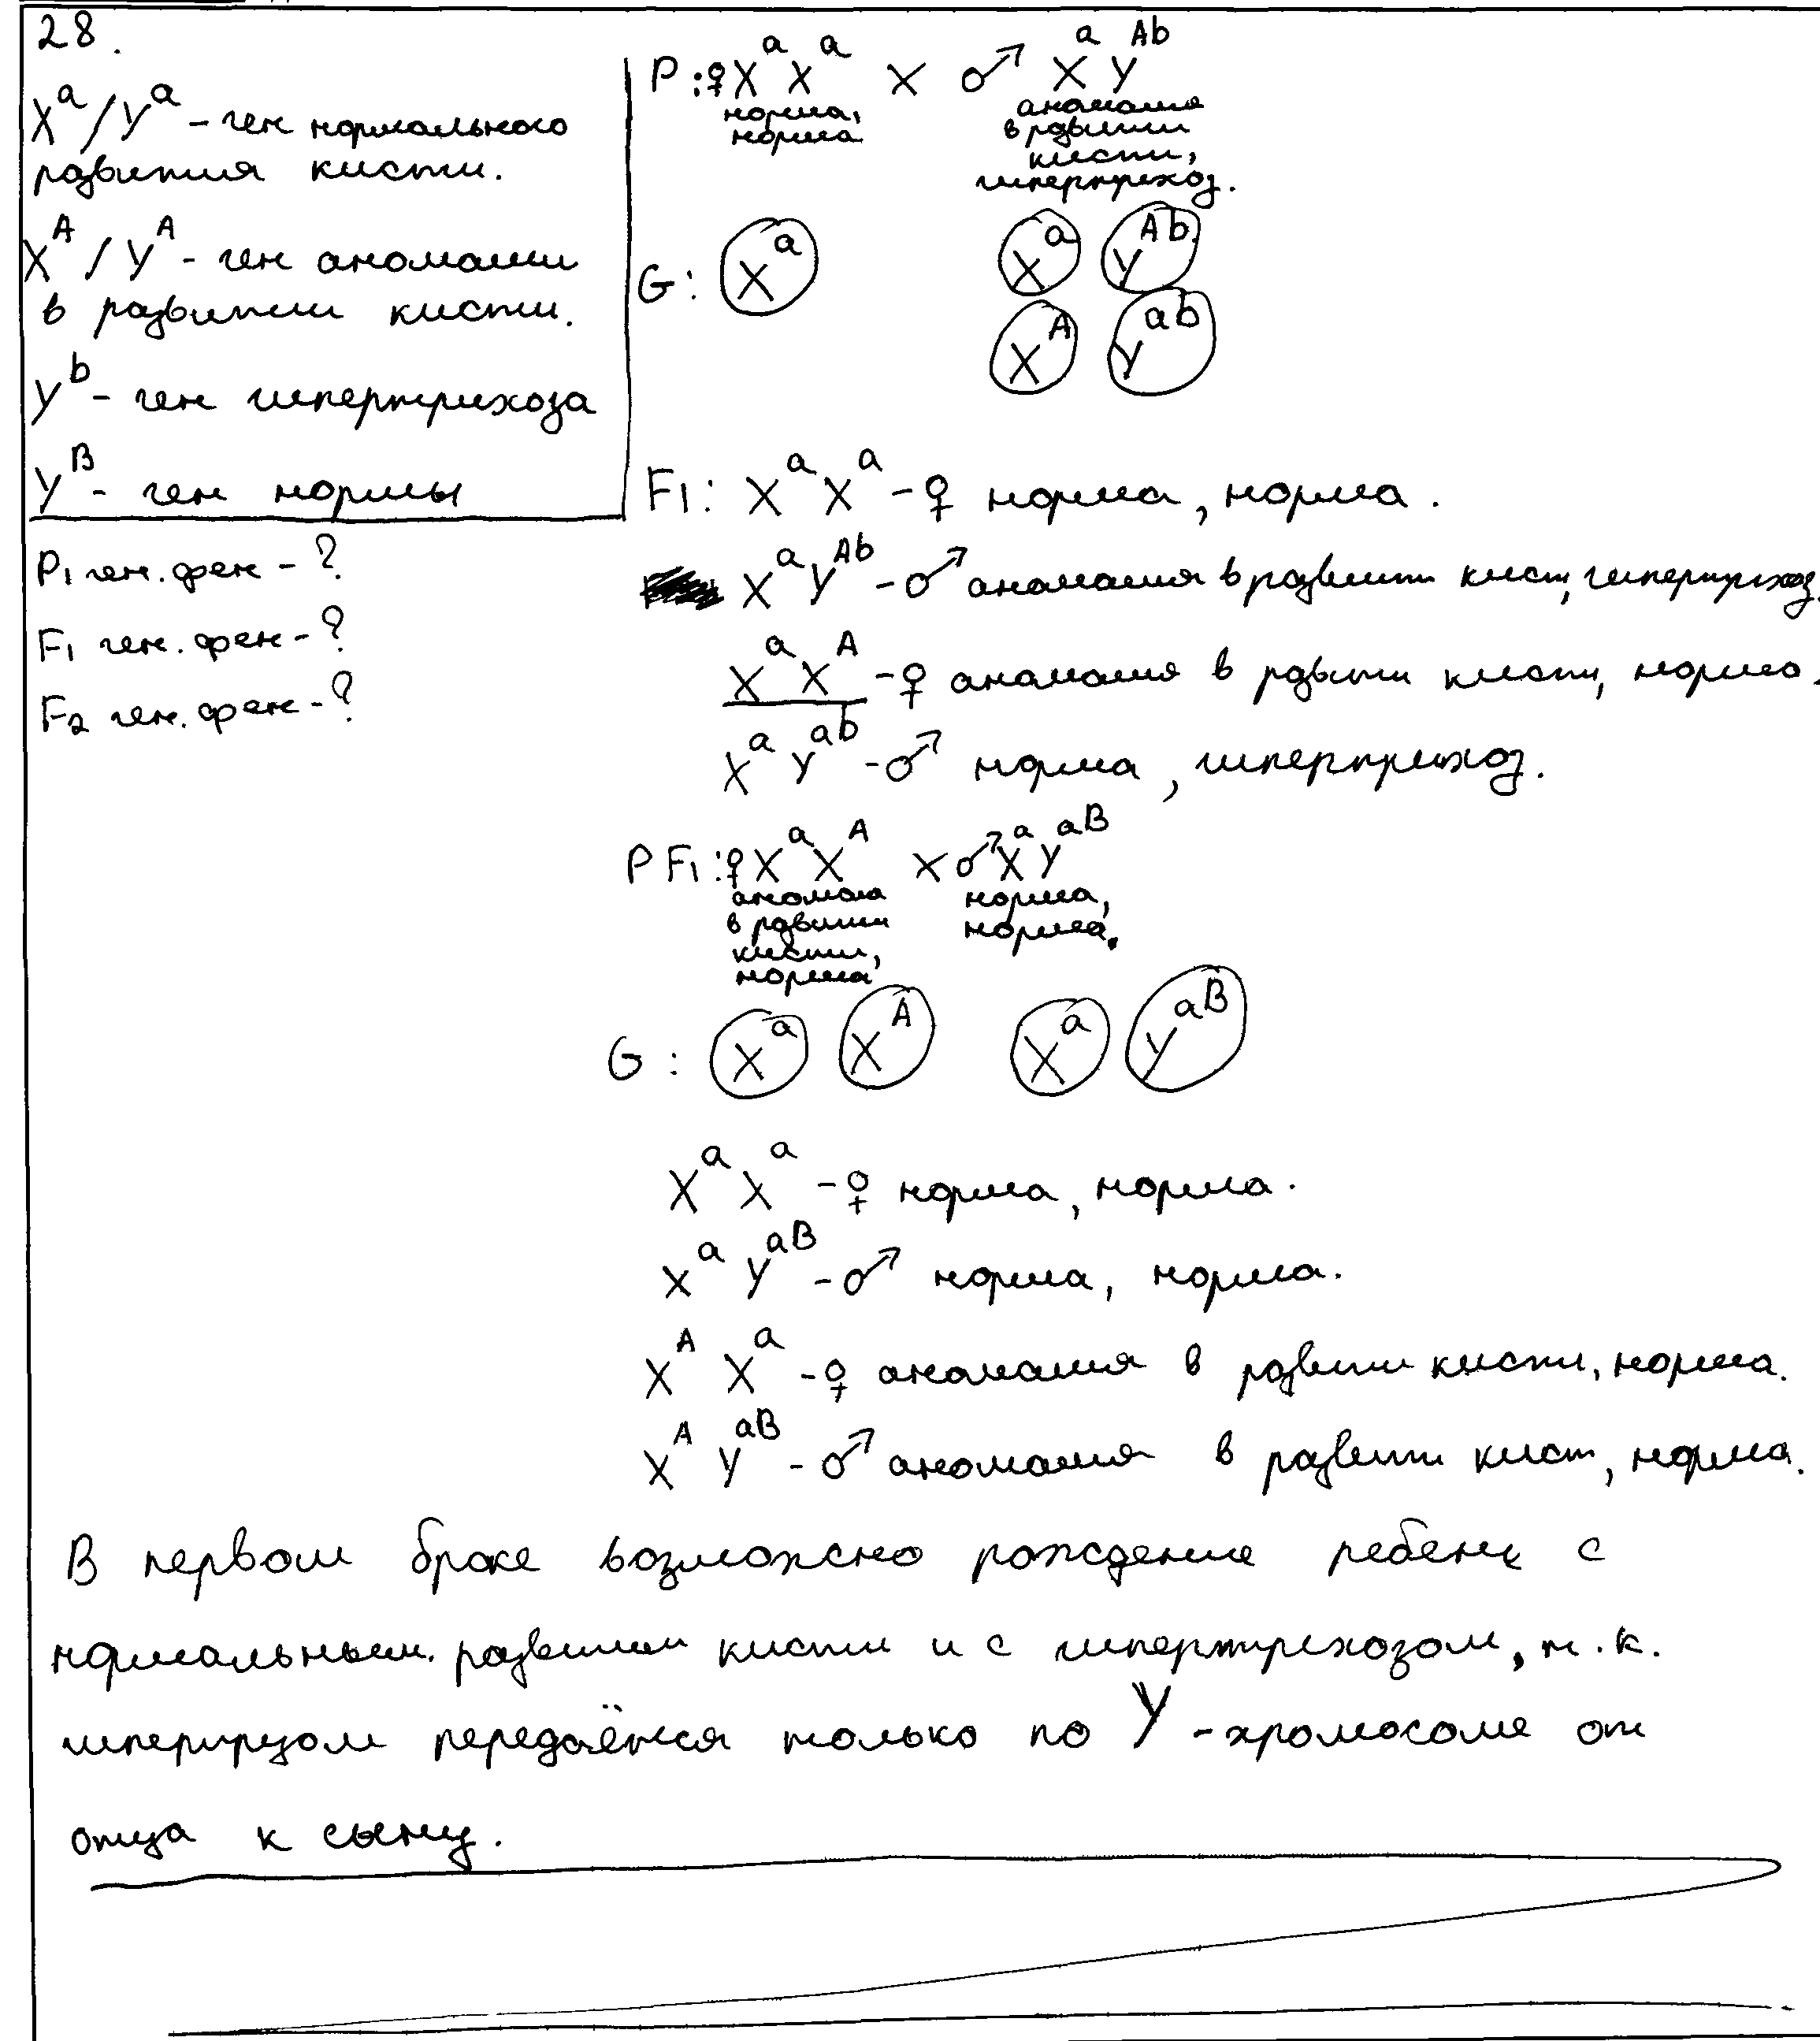 28.
X^a/Y^a - ген нормального
развития кисти.
X^A/Y^A - ген аномалии
в развитии кисти.
Y^b - ген гипертрихоза
Y^B - ген нормы
P₁ ген. фен - ?
F₁ ген. фен - ?
F₂ ген. фен - ?
P: ♀ X^a X^a × ♂ X^a Y^Ab
норма, аномалия
норма в развити
кисти,
гипертрихоз.
G: X^a X^a Y^Ab
X^A Y^ab
F₁: X^a X^a - ♀ норма, норма.
X^a Y^Ab - ♂ аномалия в развити кисти, гипертрихоз.
X^a X^A - ♀ аномалия в развити кисти, норма.
X^a Y^ab - ♂ норма, гипертрихоз.
P F₁: ♀ X^a X^A × ♂ X^a Y^aB
аномалия норма,
в развити норма.
кисти,
норма
G: X^a X^A X^a Y^aB
X^a X^a - ♀ норма, норма.
X^a Y^aB - ♂ норма, норма.
X^A X^a - ♀ аномалия в развити кисти, норма.
X^A Y^aB - ♂ аномалия в развити кист, норма.
В первом браке возможно рождение ребенк с
нормальным развитии кисти и с гипертрихозом, т.к.
передаётся только по Y-хромосоме от
отца к сыну.